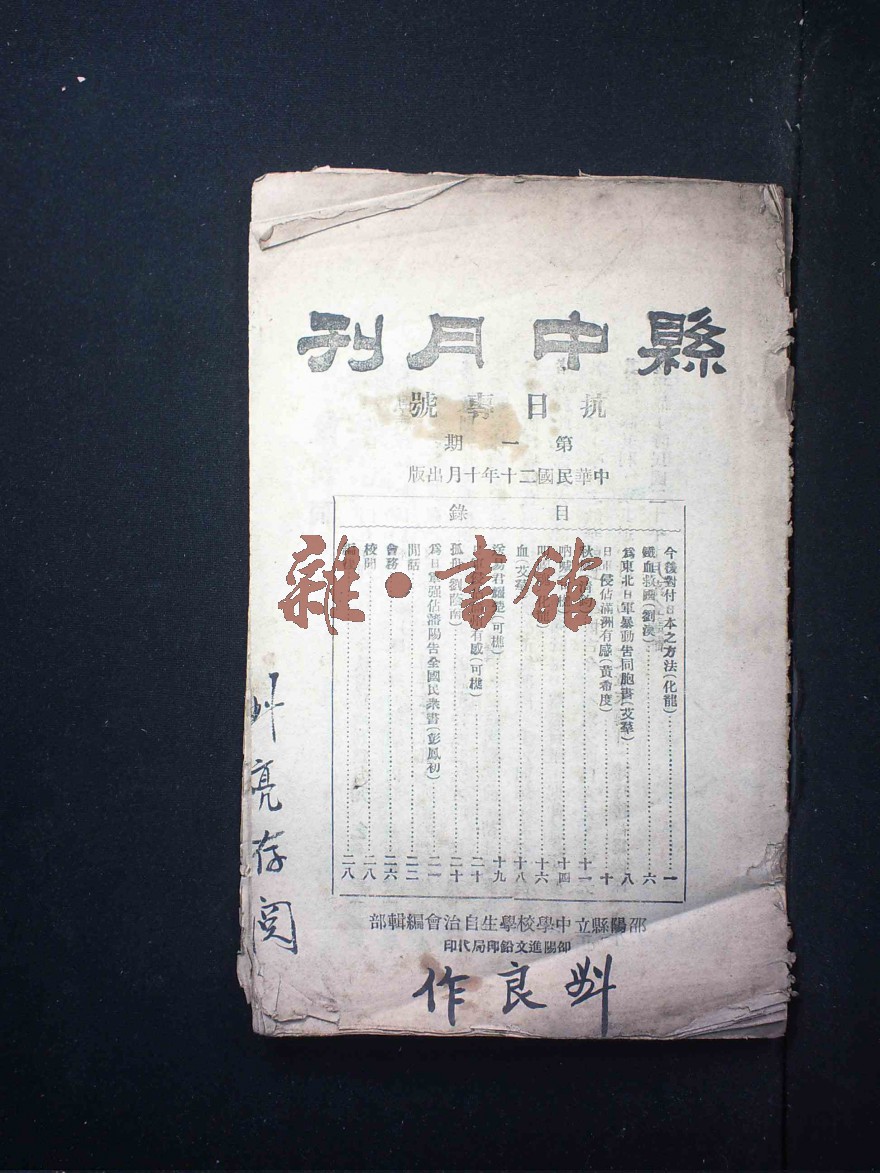 縣中月刊
抗日專號
第一期
中華民國二十年十月出版
目錄
今後對付日本之方法(化龍)……一
鐵血救國(劉漢)……六
爲東北日軍暴動告同胞書(艾羣)……八
日軍侵佔滿洲有感(黃希度)……十
秋……十一
吶……十四
……十六
血……十八
送……君……(可樵)……十九
有感(可樵)……二十
孤……劉……南)……二十
爲日軍强佔瀋陽告全國民衆書(彭鳳初)……二一
閒話……二二
會務……二六
校聞……二八
……二八
邵陽縣立中學校學生自治會編輯部
邵陽進文鉛印局代印
亮存閱
良作
雜·書館